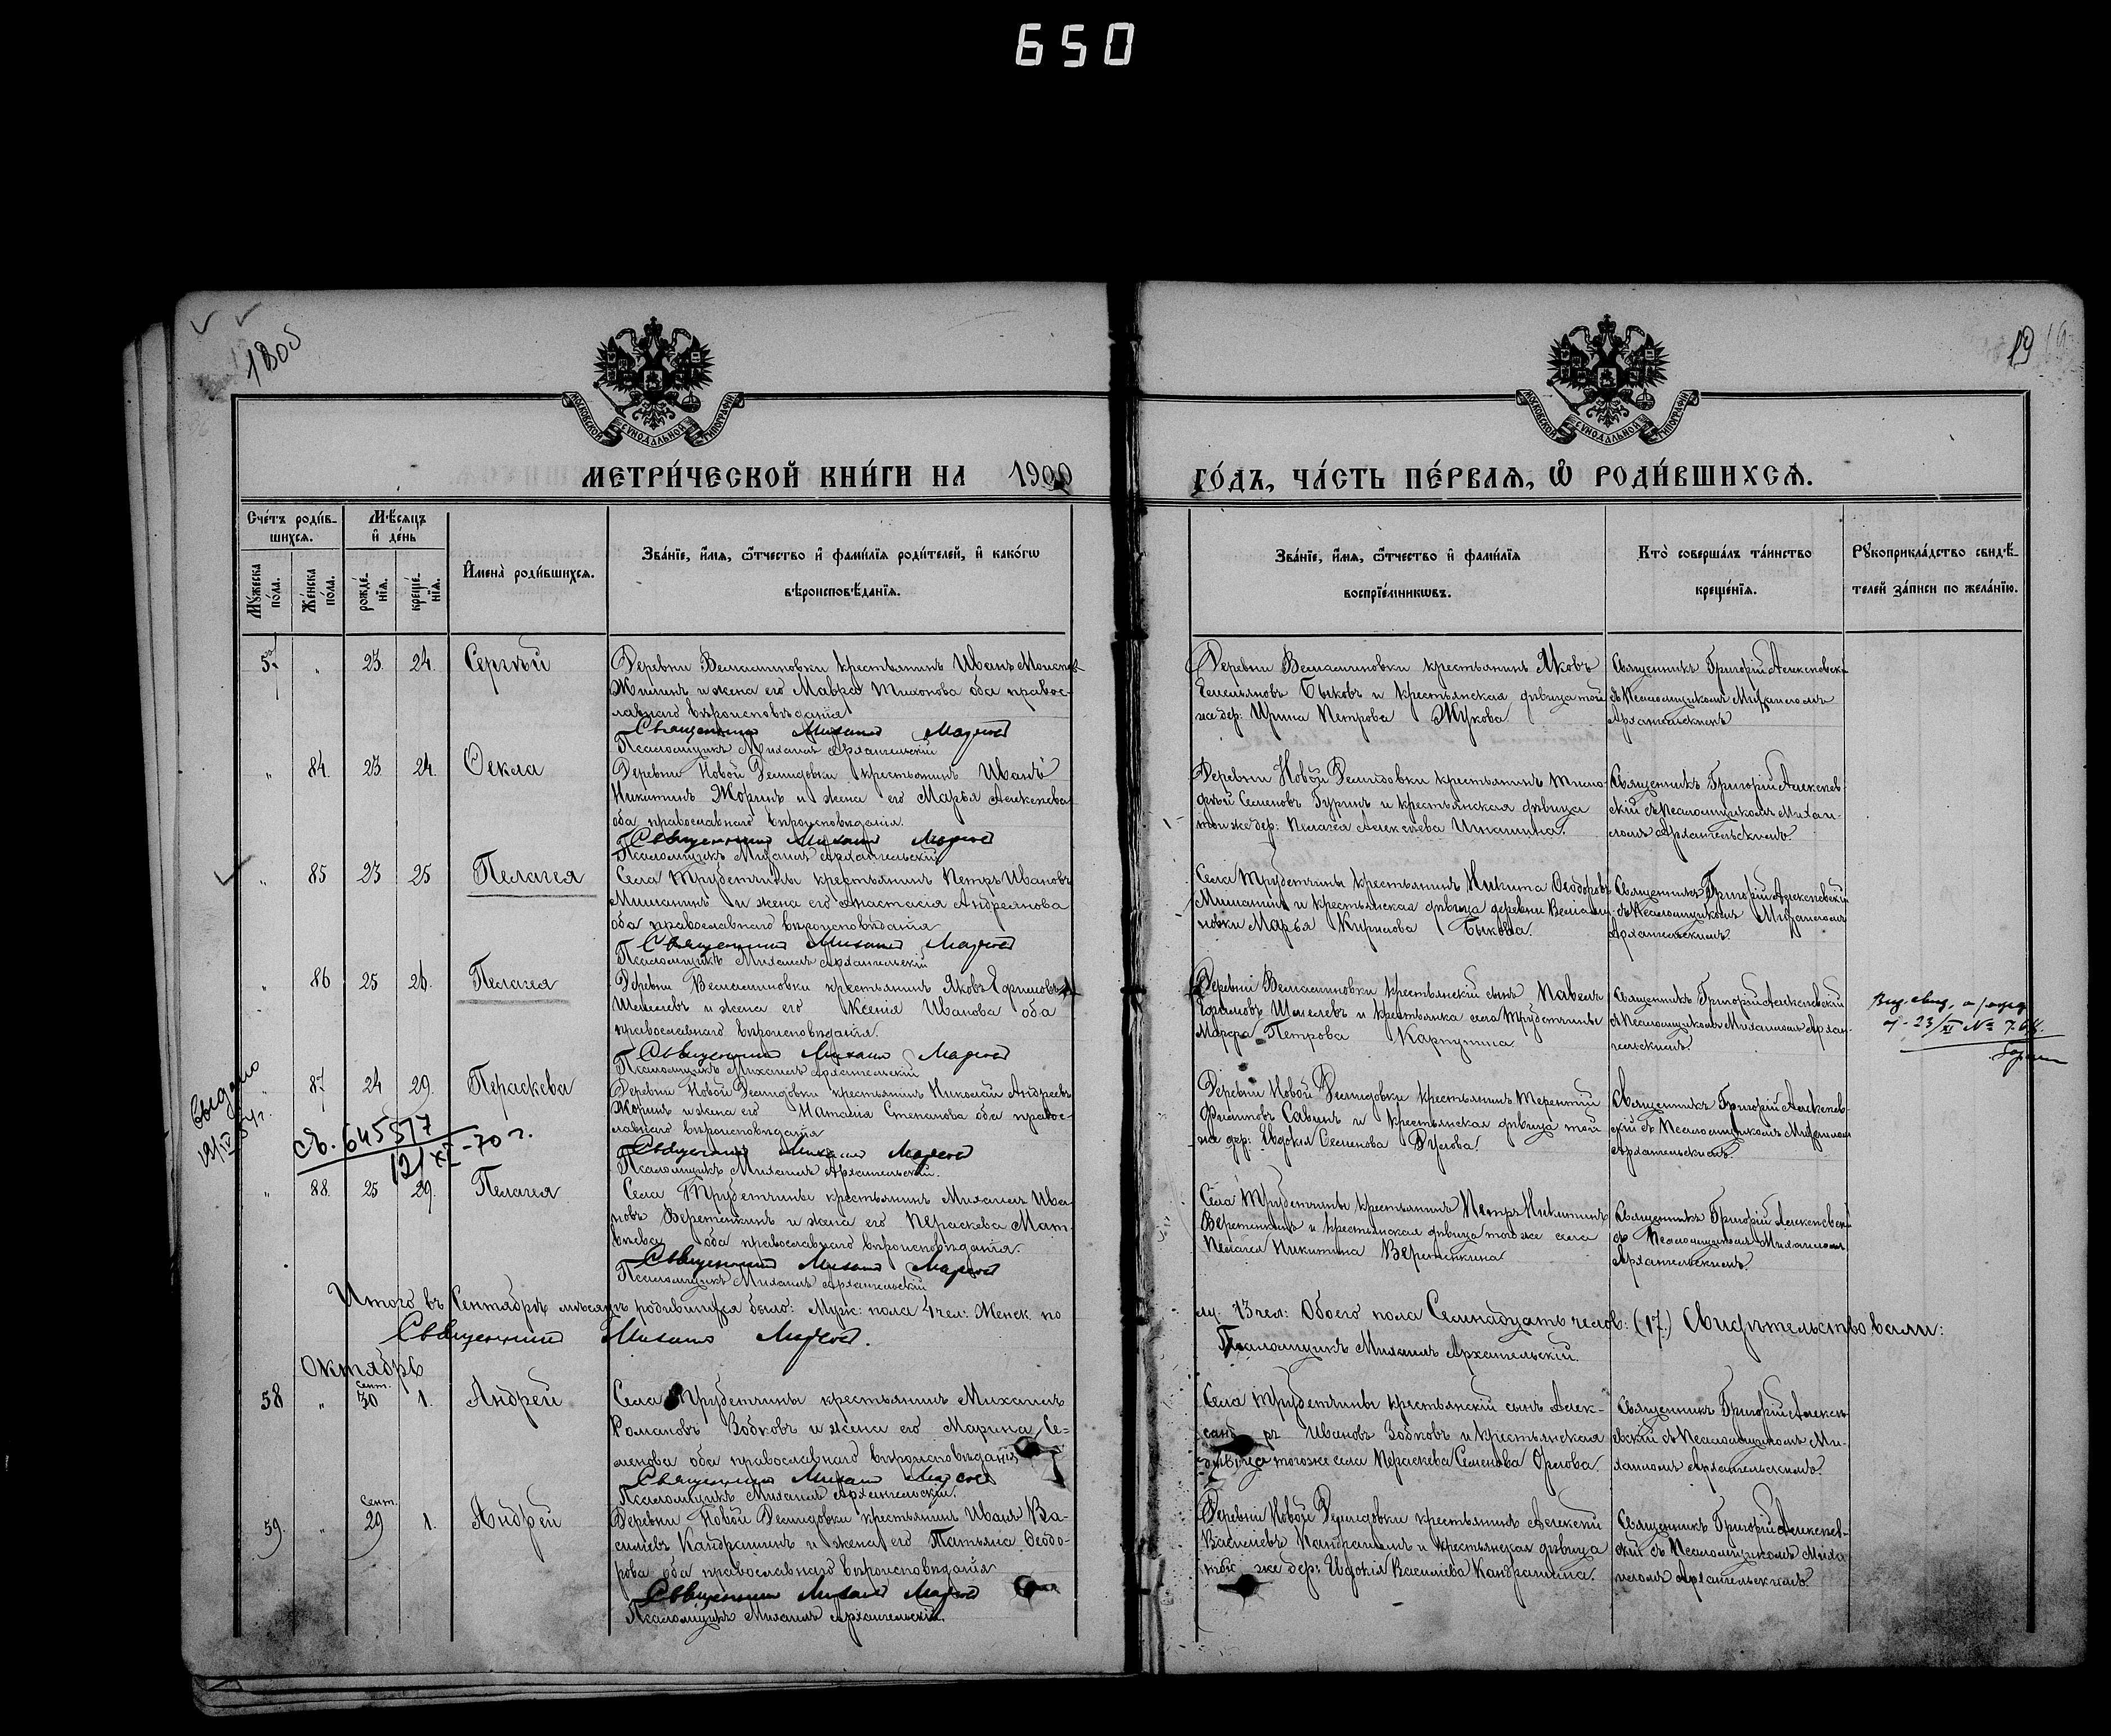 650
1805
19
МОСКОВСКОЙ СУНОДАЛЬНОЙ ТИПОГРАФІИ
МОСКОВСКОЙ СУНОДАЛЬНОЙ ТИПОГРАФІИ
МЕТРИ́ЧЕСКОЙ КНИ́ГИ НА 1900
ГО́ДЪ, ЧА́СТЬ ПЕ́РВАѦ, Ѡ҆ РОДИ́ВШИХСѦ.
Сче́тъ роди́в-
шихсѧ.
Мꙋ́жеска по́ла.
Же́нска по́ла.
Мѣ́сѧцъ и҆ де́нь
рожде́-нїѧ.
креще́-нїѧ.
И҆мена̀ роди́вшихсѧ.
Зва́нїе, и҆́мѧ, ѻ҆́тчество и҆ фами́лїѧ роди́телей, и҆ како́гѡ
вѣроисповѣ́данїѧ.
Зва́нїе, и҆́мѧ, ѻ҆́тчество и҆ фами́лїѧ
воспрїе́мникѡвъ.
Кто̀ соверша́лъ та́инство
креще́нїѧ.
Рꙋкоприкла́дство свидѣ́-
телей за́писи по жела́нїю.
23 24 Сергѣй
Деревни Вельяминовки крестьянинъ Иванъ
Жилинъ и жена его Мавра Тихонова оба правос-
лавнаго вѣроисповѣданія
Священникъ Михаилъ
Псаломщикъ Михаилъ Архангельскій
Деревни Вельяминовки крестьянинъ Яковъ
Емельяновъ Быковъ и крестьянская дѣвица той
же дер: Ирина Петрова Жукова
Священникъ Григорій Алексѣевскі
съ Псаломщикомъ Михаиломъ
Архангельскимъ
" 84 23 24 Ѳекла
Деревни Новой Демидовки крестьянинъ Иванъ
Никитинъ Жоринъ и жена его Марья Алексѣева
оба православнаго вѣроисповѣданія.
Священникъ Михаилъ
Псаломщикъ Михаилъ Архангельскій
Деревни Новой Демидовки крестьянинъ Тимо-
фѣй Семеновъ Гуринъ и крестьянская дѣвица
той же дер: Пелагея Алексѣева
Священникъ Григорій Алексѣев-
скій съ Псаломщикомъ Михаи-
ломъ Архангельскимъ.
" 85 23 25 Пелагея
Села Трубетчины крестьянинъ Петръ Ивановъ
Мишанинъ и жена его Анастасія Андреянова
оба православнаго вѣроисповѣданія
Священникъ Михаилъ
Псаломщикъ Михаилъ Архангельскій
Села Трубетчины крестьянинъ Никита Ѳеодоровъ
Мишанинъ и крестьянская дѣвица деревни Вельями-
новки Марья Кирилова Быкова.
Священникъ Григорій Алексѣевскій
съ Псаломщикомъ Михаиломъ
Архангельскимъ.
" 86 25 26 Пелагея
Деревни Вельяминовки крестьянинъ Яковъ Ефримовъ
Шмелевъ и жена его Ксенія Иванова оба
православнаго вѣроисповѣданія.
Священникъ Михаилъ
Псаломщикъ Михаилъ Архангельскій
Деревни Вельяминовки крестьянскій сынъ Павелъ
Ефримовъ Шмелевъ и крестьянка села Трубетчины
Марфа Петрова Карпушина
Священникъ Григорій Алексѣевскій
съ Псаломщикомъ Михаиломъ Архан-
гельскимъ.
" 87 24 29. Параскева
Деревни Новой Демидовки крестьянинъ Николай Андреевъ
Жоринъ и жена его Наталія Степанова оба правос-
лавнаго вѣроисповѣданія
Священникъ Михаилъ
Псаломщикъ Михаилъ Архангельскій.
Деревни Новой Демидовки крестьянинъ Терентій
Филиповъ Савинъ и крестьянская дѣвица той
же дер: Евдокія Семенова
Священникъ Григорій Алексѣев-
скій съ Псаломщикомъ Михаиломъ
Архангельскимъ.
выдано
св. 645517
12/XI-70 г.
" 88. 25 29. Пелагея
Села Трубетчины крестьянинъ Михаилъ Ива-
новъ Веретенкинъ и жена его Параскева Мат-
вѣева оба православнаго вѣроисповѣданія.
Священникъ Михаилъ
Псаломщикъ Михаилъ Архангельскій
Села Трубетчины крестьянинъ Петръ Никитинъ
Веретенкинъ и крестьянская дѣвица того же села
Пелагея Никитина Веретенкина
Священникъ Григорій Алексѣевскі
съ Псаломщикомъ Михаиломъ
Архангельскимъ.
Итого въ Сентябрѣ мѣсяцѣ родившихся было: Муж: пола 4 чел: Женск. по
лу. 13 чел: Обоего пола Семнадцать челов: (17.) Свидѣтельствовали:
Священникъ Михаилъ
Псаломщикъ Михаилъ Архангельскій.
Октябрь
58 " Сент. 30 1. Андрей
Села Трубетчины крестьянинъ Михаилъ
Романовъ Зобковъ и жена его Марина Се-
менова оба православнаго вѣроисповѣданія
Священникъ Михаилъ
Псаломщикъ Михаилъ Архангельскій.
Села Трубетчины крестьянскій сынъ Алек-
сандръ Ивановъ Зобковъ и крестьянская
дѣвица тогоже села Параскева Семенова Орлова.
Священникъ Григорій Алексѣ-
евскій съ Псаломщикомъ Ми-
хаиломъ Архангельскимъ.
59. " Сент. 29 1. Андрей
Деревни Новой Демидовки крестьянинъ Иванъ Ва-
сильевъ Кандрашинъ и жена его Татьяна Ѳеодо-
рова оба православнаго вѣроисповѣданія
Священникъ Михаилъ
Псаломщикъ Михаилъ Архангельскій.
Деревни Новой Демидовки крестьянинъ Алексѣй
Васильевъ Кандрашинъ и крестьянская дѣвица
той же дер: Евдокія Васильева Кандрашина.
Священникъ Григорій Алексѣев-
скій съ Псаломщикомъ Миха-
иломъ Архангельскимъ.